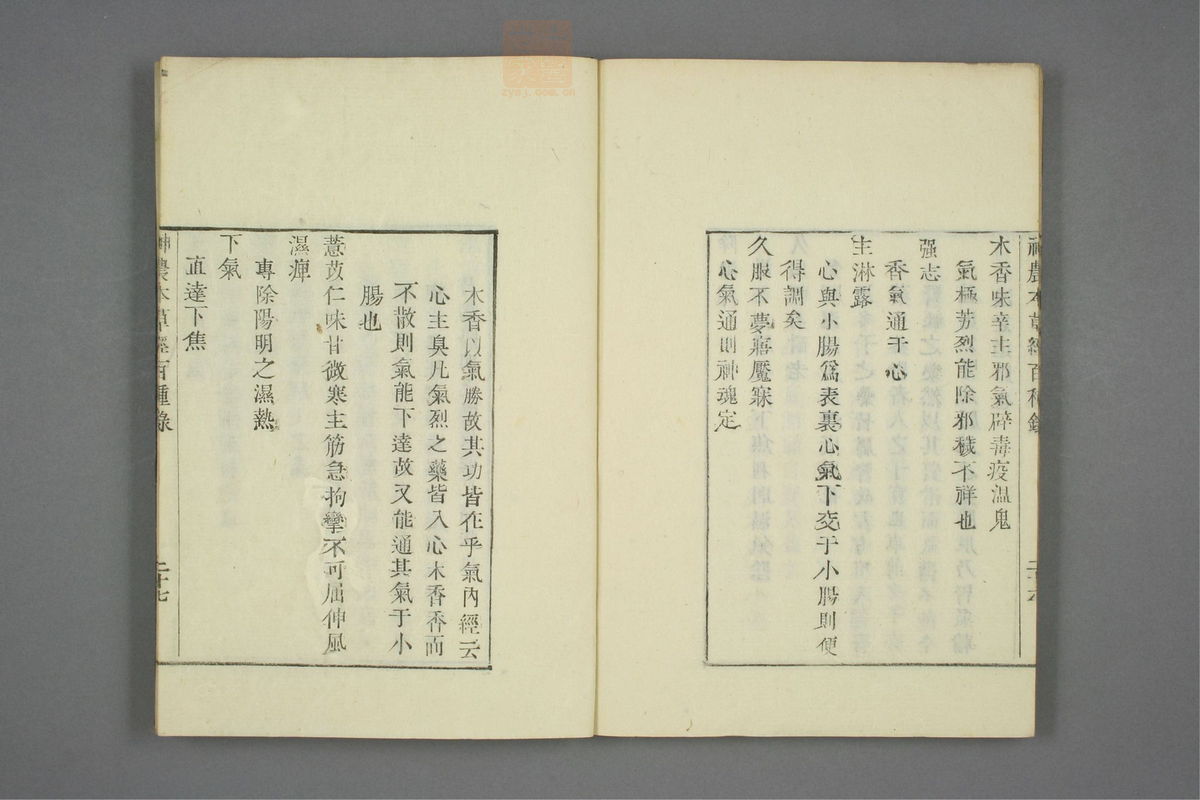 神農本草經百種錄
二十六
木香味辛主邪氣辟毒疫溫鬼
氣極芳烈能除邪穢不祥也
强志
香氣通于心
主淋露
心與小腸爲表裏心氣下交于小腸則便
得調矣
久服不夢寤魘寐
心氣通則神魂定
木香以氣勝故其功皆在乎氣內經云
心主臭凡氣烈之藥皆入心木香香而
不散則氣能下達故又能通其氣于小
腸也
薏苡仁味甘微寒主筋急拘攣不可屈伸風
濕痺
專除陽明之濕熱
下氣
直達下焦
神農本草經百種錄
二十七
zysj.com.cn